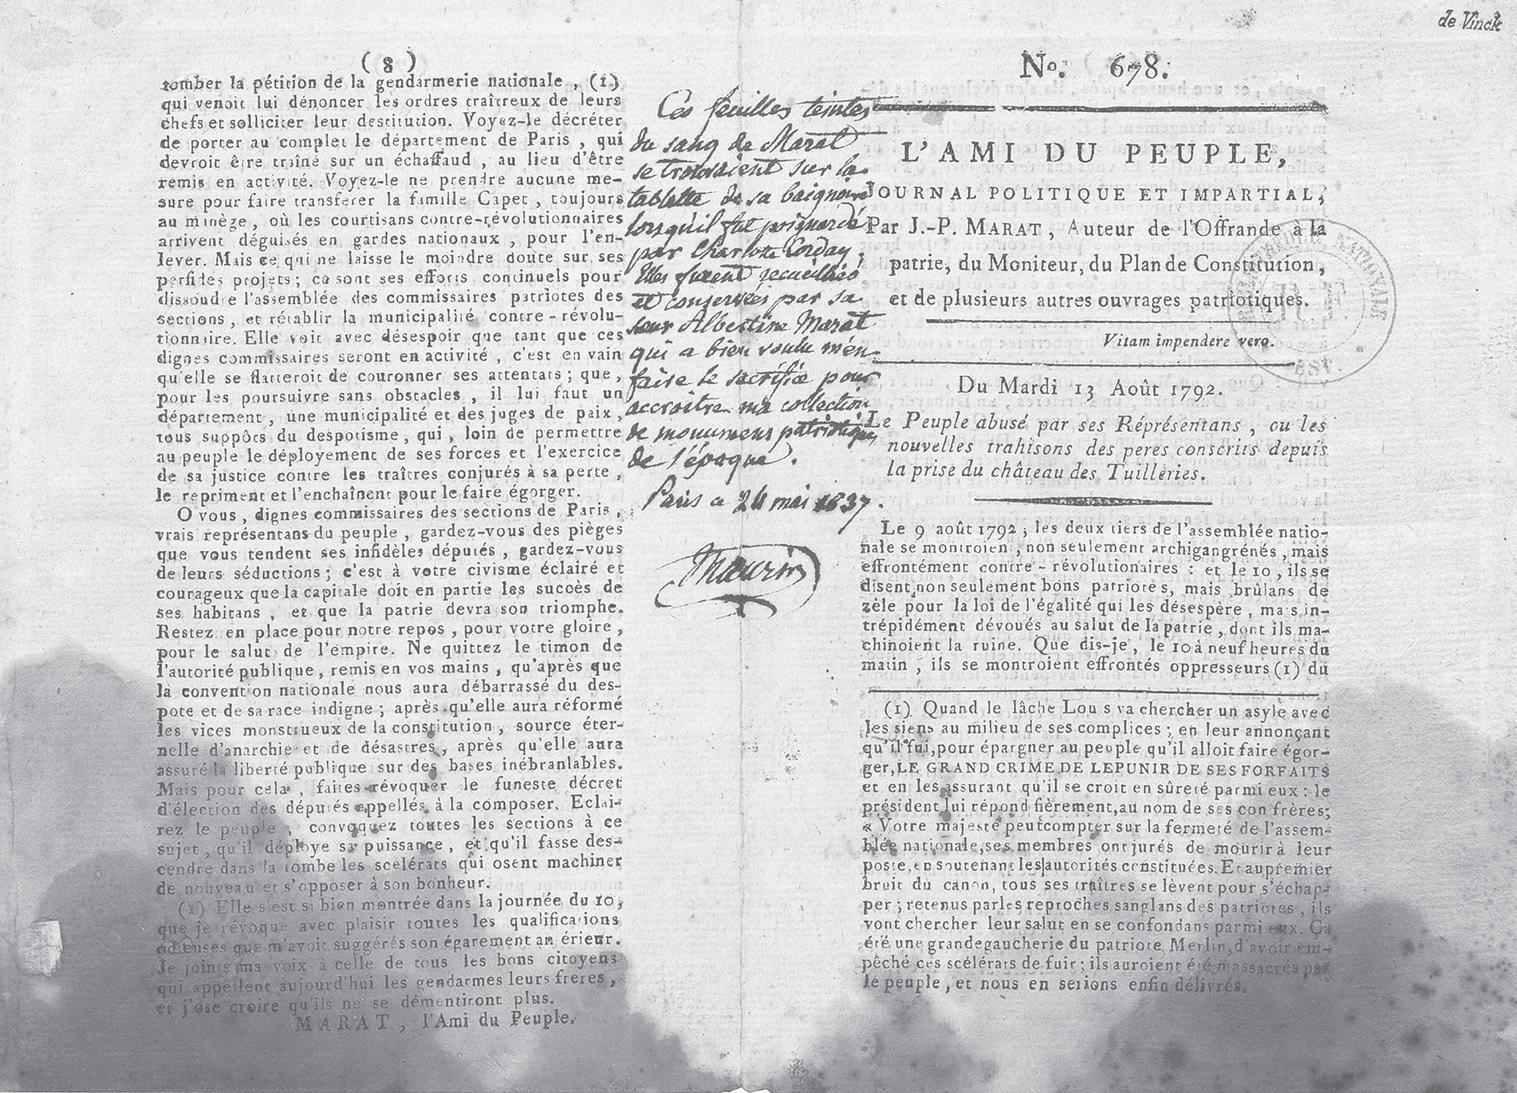 de Vinck
( 8 )
tomber la pétition de la gendarmerie nationale , (1)
qui venoit lui dénoncer les ordres traîtreux de leurs
chefs et solliciter leur destitution. Voyez-le décréter
de porter au complet le département de Paris , qui
devroit être traîné sur un échaffaud , au lieu d'être
remis en activité. Voyez-le ne prendre aucune me-
sure pour faire transférer la famille Capet , toujours
au minège, où les courtisans contre-révolutionnaires
arrivent déguisés en gardes nationaux , pour l'en-
lever. Mais ce qui ne laisse le moindre doute sur ses
perfides projets ; ce sont ses efforts continuels pour
dissoudre l'assemblée des commissaires patriotes des
sections , et rétablir la municipalité contre-révolu-
tionnaire. Elle voit avec désespoir que tant que ces
dignes commissaires seront en activité , c'est en vain
qu'elle se flatteroit de couronner ses attentats ; que ,
pour les poursuivre sans obstacles , il lui faut un
département , une municipalité et des juges de paix ,
tous suppôts du despotisme , qui , loin de permettre
au peuple le déployement de ses forces et l'exercice
de sa justice contre les traîtres conjurés à sa perte ,
le repriment et l'enchaînent pour le faire égorger.
O vous , dignes commissaires des sections de Paris ,
vrais représentans du peuple , gardez-vous des pièges
que vous tendent ses infidèles députés , gardez-vous
de leurs séductions ; c'est à votre civisme éclairé et
courageux que la capitale doit en partie les succès de
ses habitans , et que la patrie devra son triomphe.
Restez en place pour notre repos , pour votre gloire ,
pour le salut de l'empire. Ne quittez le timon de
l'autorité publique , remis en vos mains , qu'après que
la convention nationale nous aura débarrassé du des-
pote et de sa race indigne ; après qu'elle aura réformé
les vices monstrueux de la constitution , source éter-
nelle d'anarchie et de désastres , après qu'elle aura
assuré la liberté publique sur des bases inébranlables.
Mais pour cela , faites révoquer le funeste décret
d'élection des députés appellés à la composer. Eclai-
rez le peuple , convoquez toutes les sections à ce
sujet , qu'il déploye sa puissance , et qu'il fasse des-
cendre dans la tombe les scélérats qui osent machiner
de nouveau et s'opposer à son bonheur.
(1) Elle s'est si bien montrée dans la journée du 10,
que je révoque avec plaisir toutes les qualifications
odieuses que m'avoit suggérés son égarement antérieur.
Je joins ma voix à celle de tous les bons citoyens
qui appellent aujourd'hui les gendarmes leurs frères ,
et j'ose croire qu'ils ne se démentiront plus.
MARAT , l'Ami du Peuple.
Ces feuilles teintes
du sang de Marat
se trouvaient sur la
tablette de sa baignoire
lorsqu'il fut poignardé
par Charlotte Corday ;
Elles furent recueillies
et conservées par sa
sœur Albertine Marat
qui a bien voulu m'en
faire le sacrifice pour
accroitre ma collection
de monumens patriotiques
de l'époque.
Paris ce 24 mai 1837.
Maurin
No. 678.
L'AMI DU PEUPLE,
JOURNAL POLITIQUE ET IMPARTIAL,
Par J.-P. MARAT , Auteur de l'Offrande à la
patrie, du Moniteur, du Plan de Constitution,
et de plusieurs autres ouvrages patriotiques.
Vitam impendere vero.
Du Mardi 13 Août 1792.
Le Peuple abusé par ses Réprésentans , ou les
nouvelles trahisons des peres conscrits depuis
la prise du château des Tuilleries.
Le 9 août 1792 ; les deux tiers de l'assemblée natio-
nale se montroient , non seulement archigangrénés , mais
effrontément contre-révolutionnaires : et le 10 , ils se
disent non seulement bons patriotes, mais brûlans de
zèle pour la loi de l'égalité qui les désespère , mais in-
trépidement dévoués au salut de la patrie , dont ils ma-
chinoient la ruine. Que dis-je, le 10 à neuf heures du
matin , ils se montroient effrontés oppresseurs (1) du
(1) Quand le lâche Louis va chercher un asyle avec
les siens au milieu de ses complices ; en leur annonçant
qu'il fui, pour épargner au peuple qu'il alloit faire égor-
ger, LE GRAND CRIME DE LE PUNIR DE SES FORFAITS
et en les assurant qu'il se croit en sûreté parmi eux : le
président lui répond fièrement, au nom de ses con frères ;
« Votre majesté peut compter sur la fermeté de l'assem-
blée nationale, ses membres ont jurés de mourir à leur
poste, en soutenant les autorités constituées. Et au premier
bruit du canon, tous ses traîtres se lèvent pour s'échap-
per ; retenus par les reproches sanglans des patriotes , ils
vont chercher leur salut en se confondans parmi eux. Ça
été une grande gaucherie du patriote Merlin, d'avoir em-
pêché ces scélérats de fuir ; ils auroient été massacrés par
le peuple , et nous en serions enfin délivrés.
BIBLIOTHÈQUE NATIONALE
R.F.
EST.